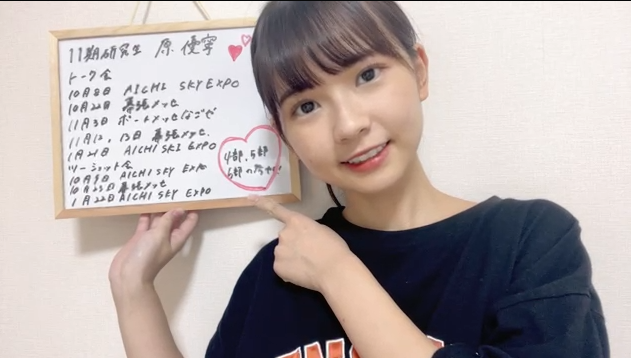 11期研究生 原 優寧
トーク会
10月8日 AICHI SKY EXPO
10月22日 幕張メッセ
11月3日 ポートメッセなごや
11月12, 13日 幕張メッセ
1月21日 AICHI SKI EXPO
ツーショット会
10月9日 AICHI SKY EXPO
10月23日 幕張メッセ
1月22日 AICHI SKY EXPO
4部、5部
6部の